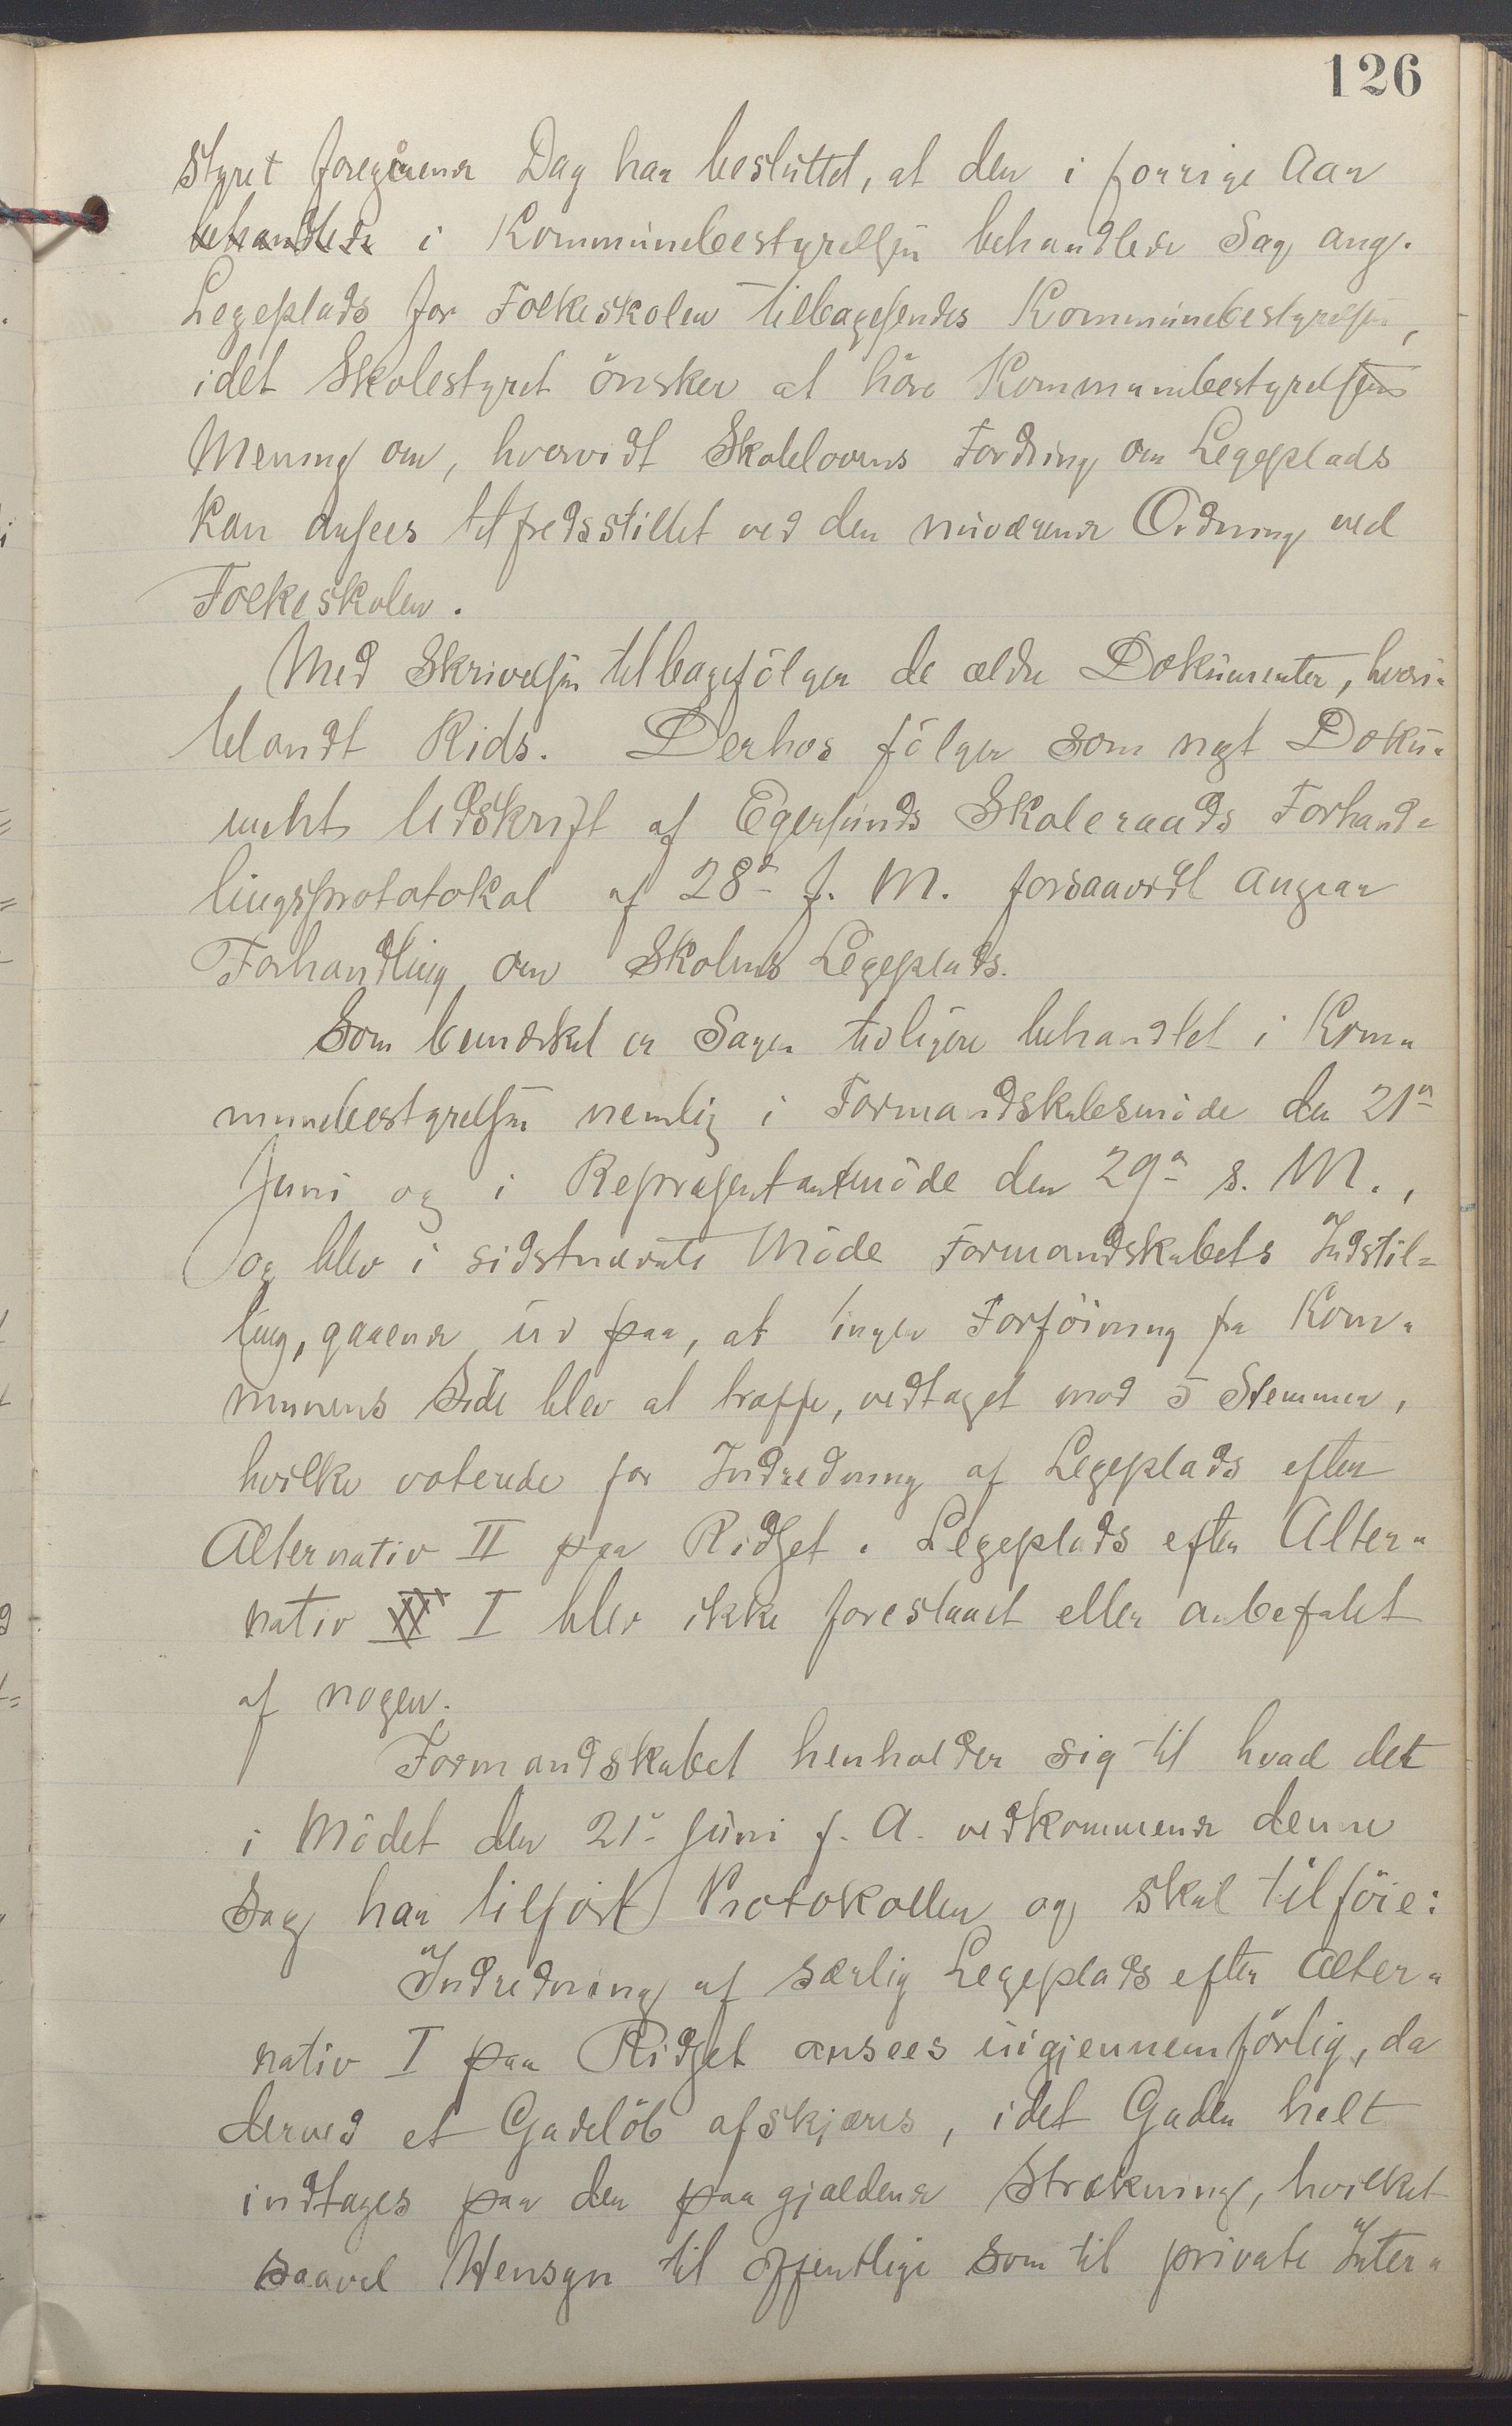 126
styret foregaaende Dag har besluttet, at den i forrige Aar
behandlede i Kommunebestyrelsen behandlede Sag ang.
Legeplads for Folkeskolen tilbagesendes Kommunebestyrelsen,
idet Skolestyret önsker at höre Kommunebestyrelsens
Mening om, hvorvidt Skolelovens Fordring om Legeplads
kan ansees tilfredsstillet ved den nuværende Ordning ved
Folkeskolen.
Med Skrivelsen tilbagefölger de ældre Dokumenter, hvori-
blandt Rids. Derhos fölger som nyt Doku-
ment Udskrift af Egersunds Skoleraads Forhand-
lingsprototokol af 28de f. M. forsaavidt angaar
Forhandling om Skolens Legeplads.
Som bemærket er Sagen tidligere behandlet i Kom-
munebestyrelsen nemlig i Formandskabsmöde den 21de
Juni og i Repræsentantmöde den 29de s. M.,
og blev i sidstnævnte Möde Formandskabets Indstil-
ling, gaaende ud paa, at ingen Forföining fra Kom-
munens Side blev at træffe, vedtaget mod 5 Stemmer,
hvilke voterede for Indredning af Legeplads efter
Alternativ II paa Ridset. Legeplads efter Alter-
nativ II I blev ikke foreslaaet eller anbefalet
af nogen.
Formandskabet henholder sig til hvad det
i Mödet den 21de Juni f. A. vedkommende denne
Sag har tilfört Protokollen og skal tilföie:
Indredning af særlig Legeplads efter Alter-
nativ I paa Ridset ansees uigjennemförlig, da
derved et Gadelöb afskjæres, idet Gaden helt
indtages paa den paagjældende Strækning, hvilket
saavel Hensyn til offentlige som til private Inter-